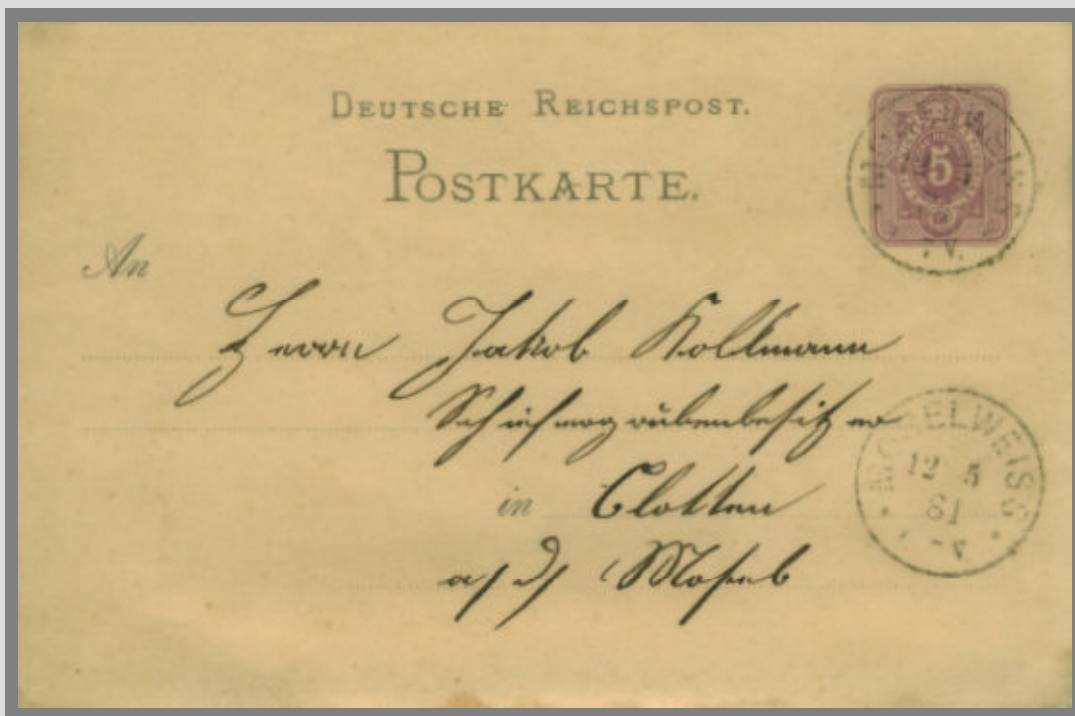 DEUTSCHE REICHSPOST.
POSTKARTE.
5
An
Herrn Jakob Kollmann
Schiefergrubenbesitzer
in Clotten
a/d/ Mosel
MOSELWEISS
12 5
81
V.